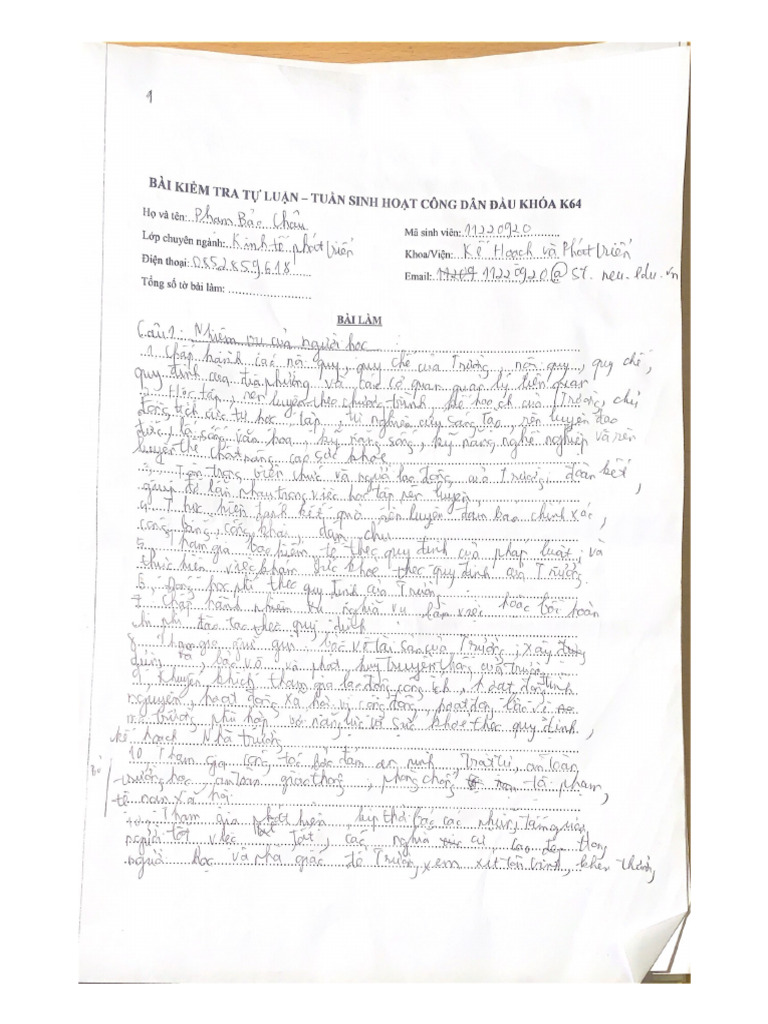 1
BÀI KIỂM TRA TỰ LUẬN – TUẦN SINH HOẠT CÔNG DÂN ĐẦU KHÓA K64
Họ và tên: Phạm Bảo Châu
Mã sinh viên: 11220920
Lớp chuyên ngành: Kinh tế phát triển
Khoa/Viện: Kế Hoạch và Phát triển
Điện thoại: 0852859618
Email: 11220920@st.neu.edu.vn
Tổng số tờ bài làm:
BÀI LÀM
Câu 1: Nhiệm vụ của người học
1. Chấp hành các nội quy, quy chế của Trường, nội quy, quy chế,
quy định của địa phương và các cơ quan quản lý liên quan
2. Học tập, rèn luyện theo chương trình, kế hoạch của Trường, chủ
động, tích cực tự học, tập, tự nghiên cứu, sáng tạo, rèn luyện đạo
đức, lối sống văn hóa, kỹ năng sống, kỹ năng nghề nghiệp và rèn
luyện thể chất nâng cao sức khỏe
3. Tôn trọng viên chức và người lao động của Trường đoàn kết,
giúp đỡ lẫn nhau trong việc học tập rèn luyện,
4. Thực hiện kết quả rèn luyện đảm bảo chính xác,
công bằng, công khai, dân chủ
5. Tham gia bảo hiểm y tế theo quy định của pháp luật, và
thực hiện việc khám sức khỏe theo quy định của Trường.
6. Đóng học phí theo quy định của Trường
7. Chấp hành nhiệm vụ nghĩa vụ làm việc hoặc bồi hoàn
chi phí đào tạo theo quy định
8. Tham gia, giữ gìn bảo vệ tài sản của Trường; xây dựng
, bảo vệ và phát huy truyền thống của trường
9. Khuyến khích tham gia lao động công ích, hoạt động tình
nguyện, hoạt động xã hội vì cộng đồng, hoạt động bảo vệ
môi trường phù hợp với năng lực và sức khỏe theo quy định,
kế hoạch Nhà trường
10. Tham gia công tác bảo đảm an ninh, trật tự, an toàn
trường học, an toàn giao thông, phòng chống tội phạm,
tệ nạn xã hội
Tham gia phát hiện, kịp thời các những tấm gương
người tốt việc tốt, các nghĩa cử cao đẹp trong
người học và nhà giáo để Trường xem xét tôn vinh, khen thưởng